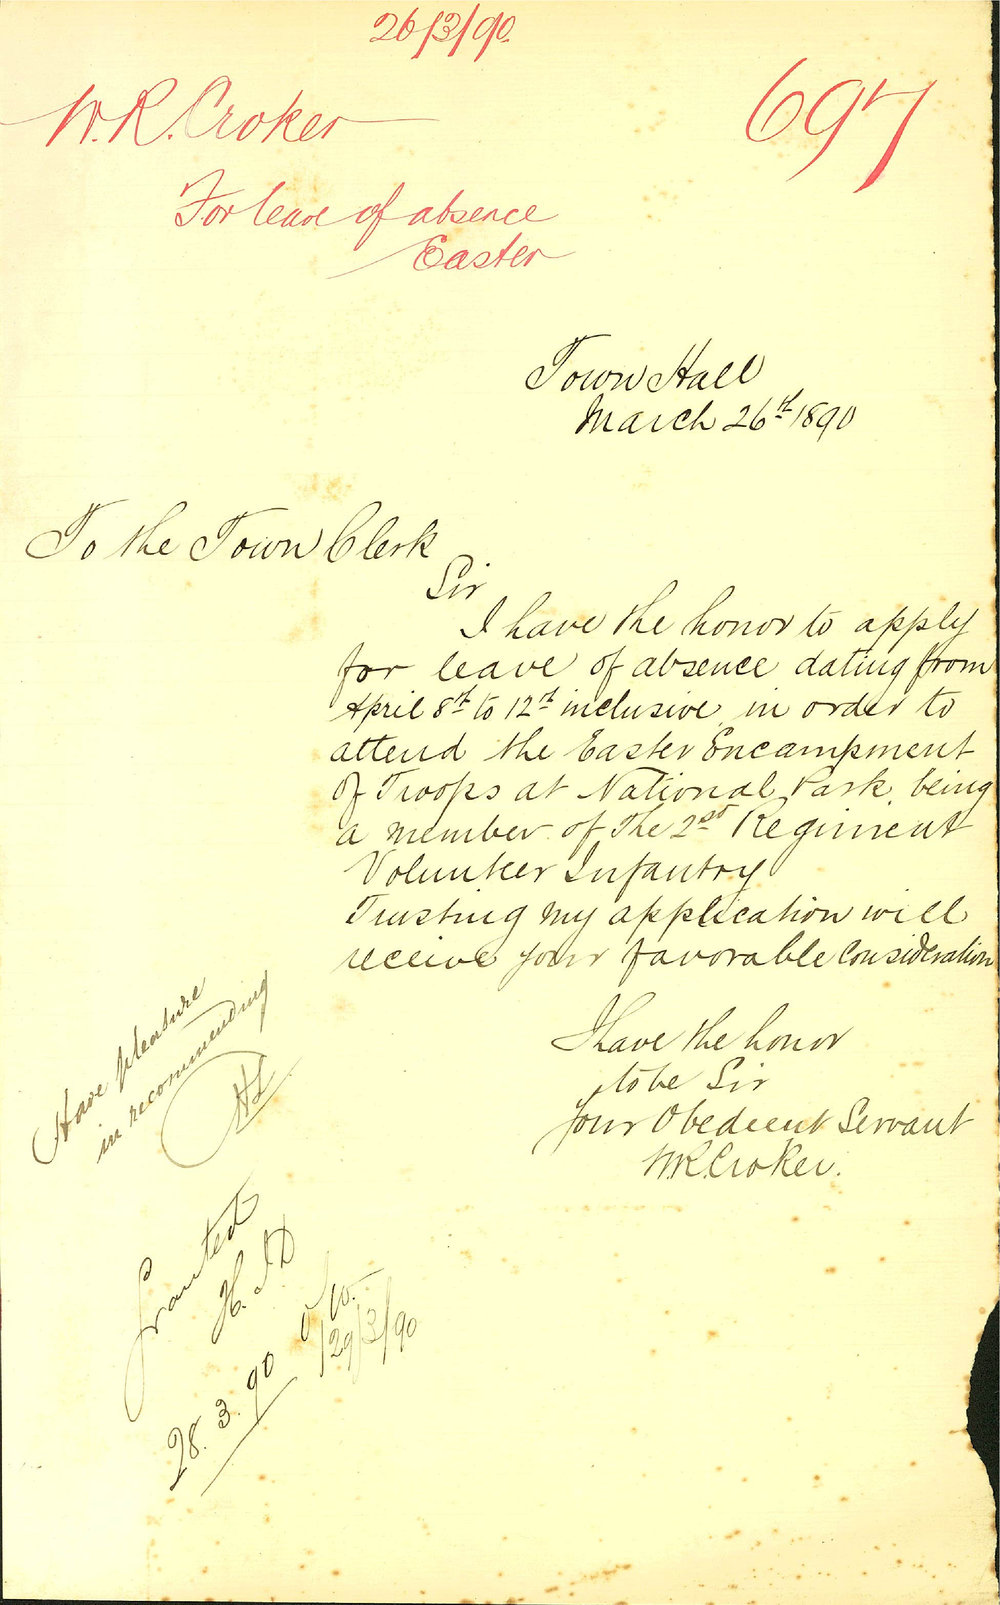 26/3/90.
W. R. Croker
697
For leave of absence
Easter
Town Hall
March 26th 1890
To the Town Clerk
Sir
I have the honor to apply
for leave of absence dating from
April 8th to 12th inclusive in order to
attend the Easter Encampment
of Troops at National Park, being
a member of the 2nd Regiment
Volunteer Infantry
Trusting my application will
receive your favorable consideration
I have the honor
to be Sir
Your Obedient Servant
W.R. Croker.
Have pleasure
in recommending
Granted
28.3.90
29/3/90